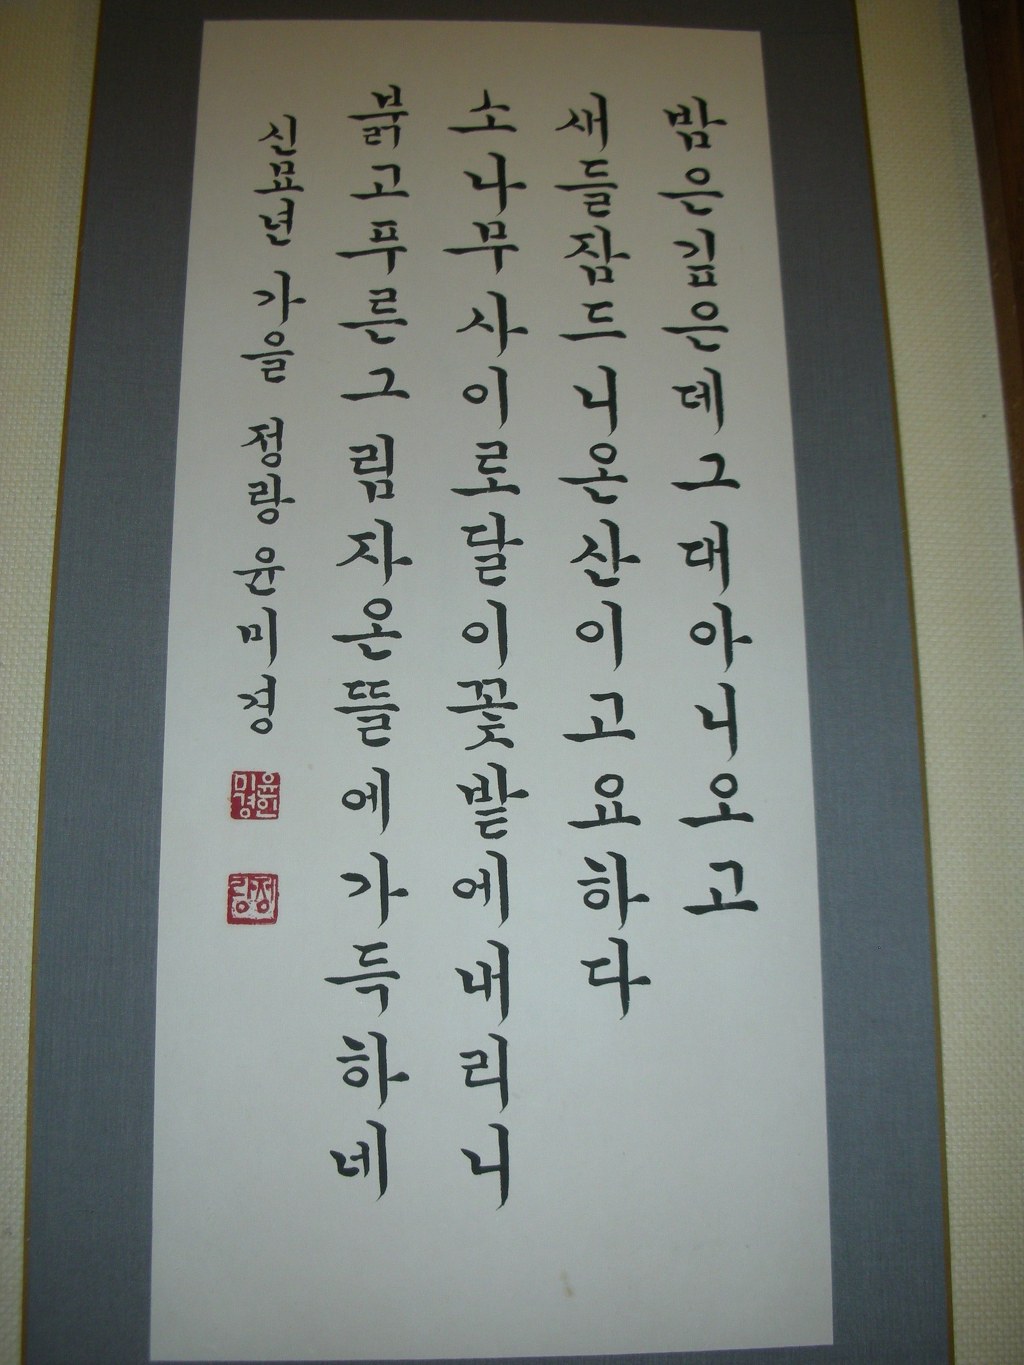 밤은깊은데그대아니오고
새들잠드니온산이고요하다
소나무사이로달이꽃밭에내리니
붉고푸른그림자온뜰에가득하네
신묘년 가을 정랑 윤미경
윤인미경
정랑